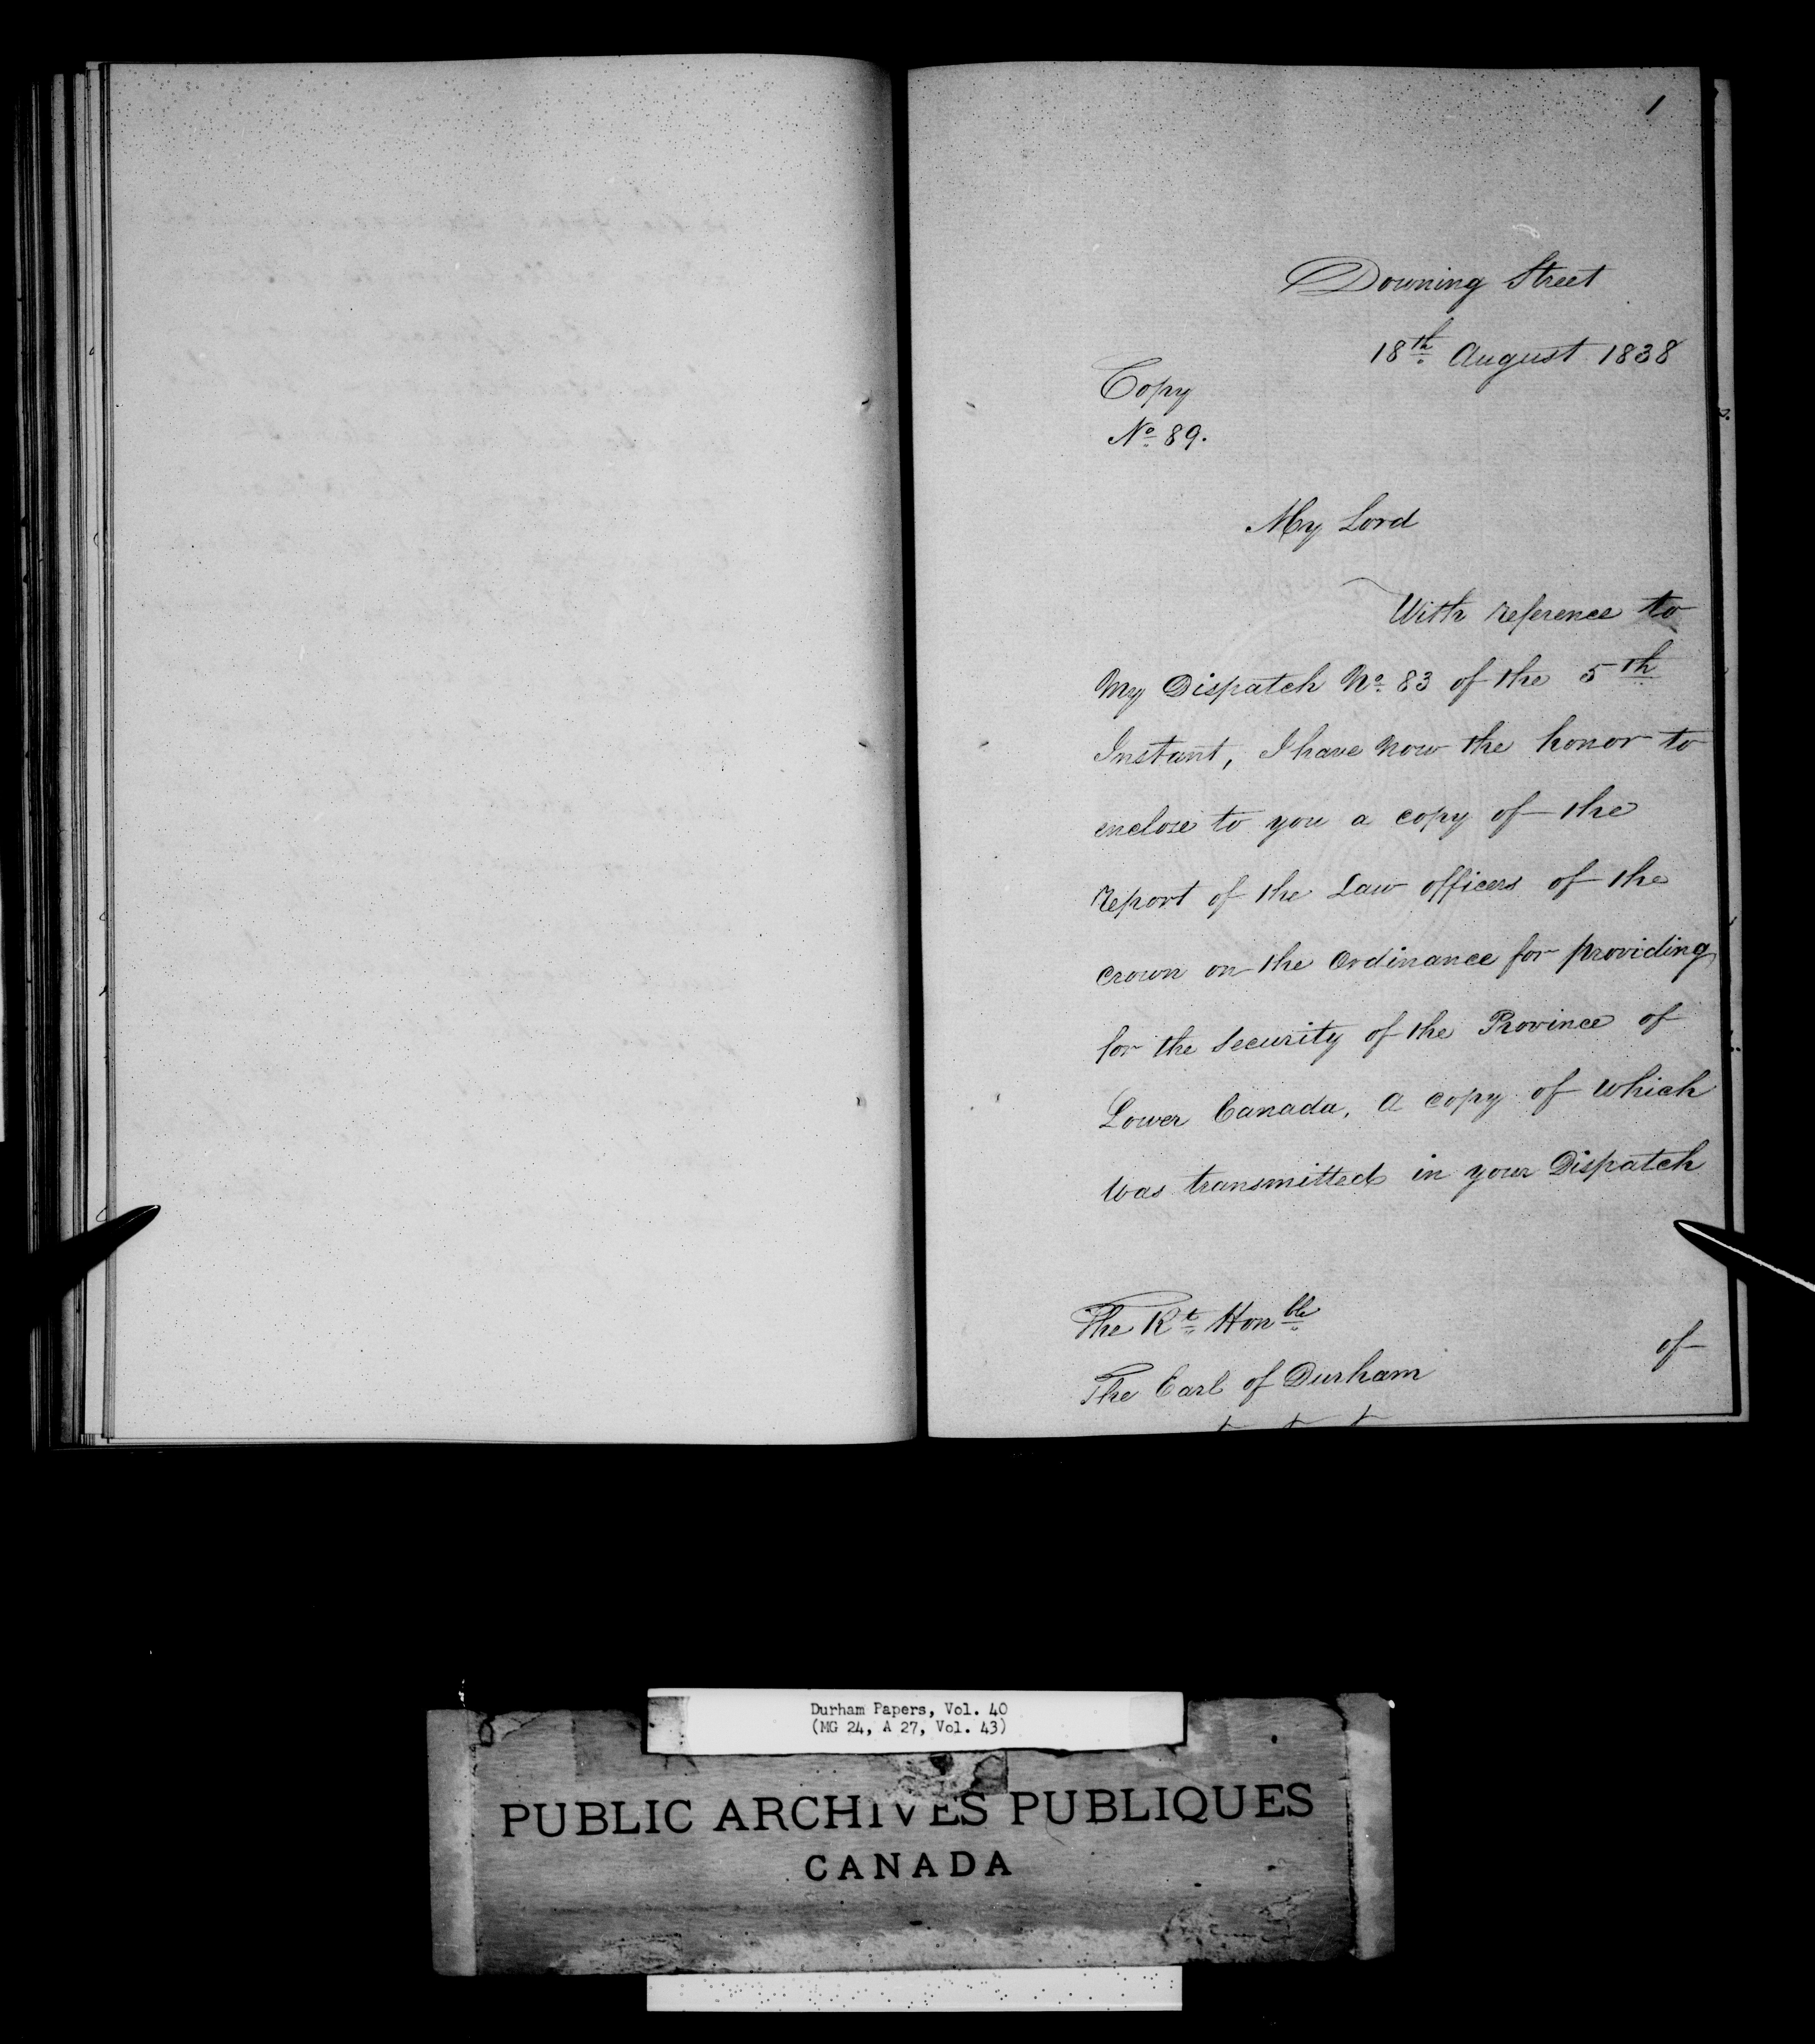 1
Downing Street
18th August 1838
Copy
No 89.
My Lord
With reference to
My Dispatch No 83 of the 5th
Instant, I have now the honor to
enclose to you a copy of the
report of the Law officers of the
crown on the Ordinance for providing
for the Security of the Province of
Lower Canada, a copy of which
was transmitted in your Dispatch
The Rt Honble
The Earl of Durham
of
Durham Papers, Vol. 40
(MG 24, A 27, Vol. 43)
PUBLIC ARCHIVES PUBLIQUES
CANADA